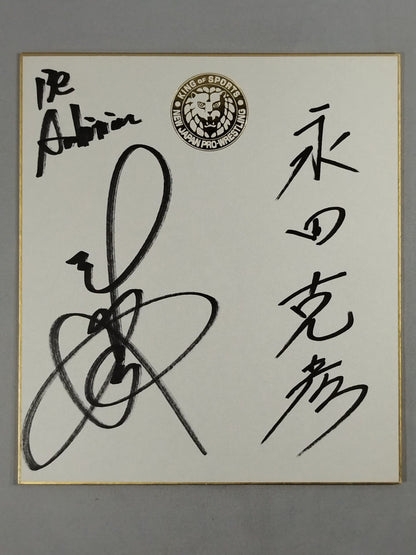 Be
Ambitious
KING OF SPORTS
NEW JAPAN PRO-WRESTLING
永田克彦